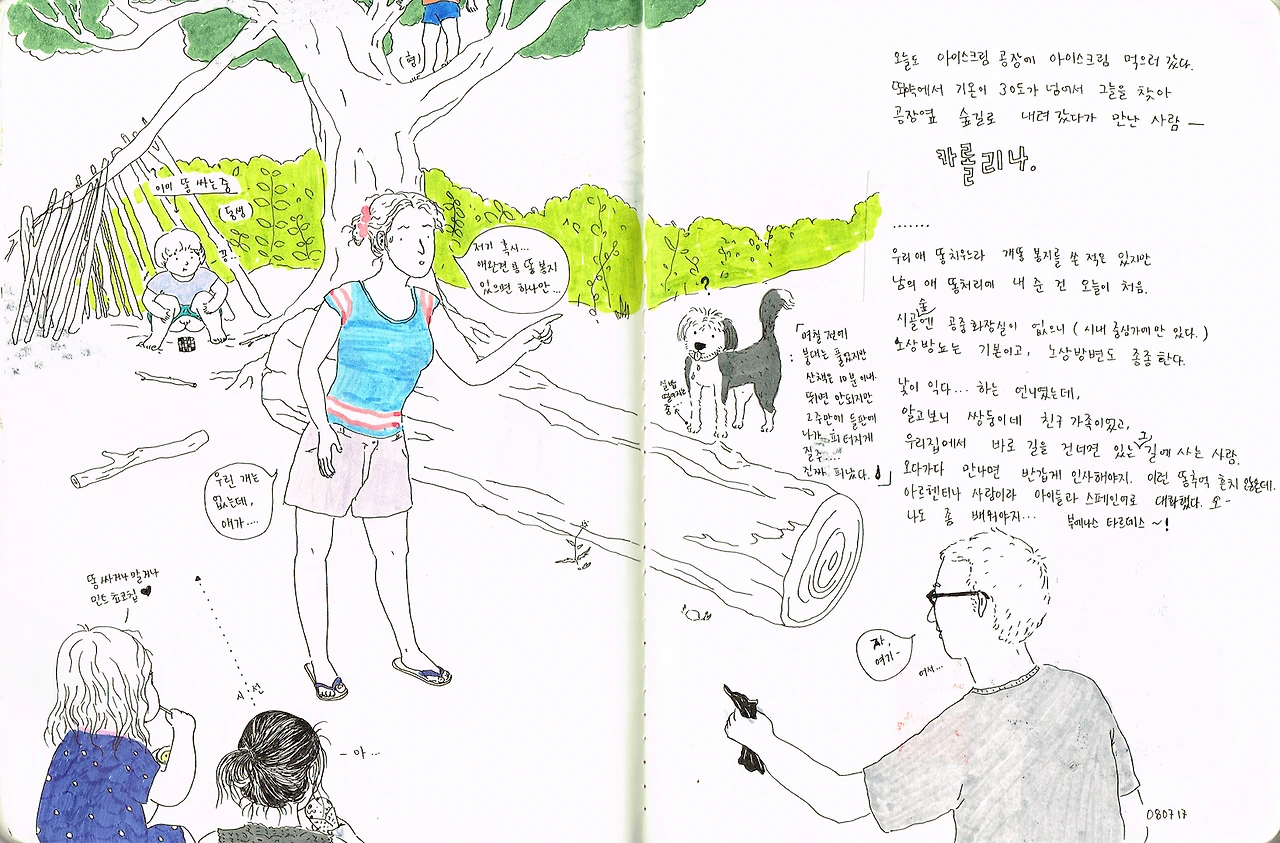 (형)
이미 똥 싸는 중
(동생)
끙..
저기 혹시...
애완견용 똥 봉지
있으면 하나만...
우린 개는
없는데,
애가....
똥 싸거나 말거나
민트 쵸코칩 ♥
시선
- 아 ...
?
「며칠 전에
붕대는 풀었지만
산책은 10분 이내.
뛰면 안되지만
2주만에 들판에
나가 피 터지게
질주....
진짜 피났다. 」
실밥
떨어지는
중...
오늘도 아이스크림 공장에 아이스크림 먹으러 갔다.
땡볕에서 기온이 30도가 넘어서 그늘을 찾아
공장옆 숲길로 내려갔다가 만난 사람 —
카롤리나.
.......
우리애 똥 치우느라 개똥 봉지를 쓴 적은 있지만
남의 애 똥처리에 내 준 건 오늘이 처음.
시골숲엔 공중화장실이 없으니 (시내 중심가에만 있다.)
노상방뇨는 기본이고, 노상방변도 종종 한다.
낯이 익다... 하는 언니였는데,
알고보니 쌍둥이네 친구 가족이었고,
우리집에서 바로 길을 건너면 있는 그 길에 사는 사람.
오다가다 만나면 반갑게 인사해야지. 이런 똥추억 흔치 않은데.
아르헨티나 사람이라 아이들과 스페인어로 대화했다. 오-
나도 좀 배워야지... 부에나스 타르데스 ~!
자,
여기-
어서...
080717